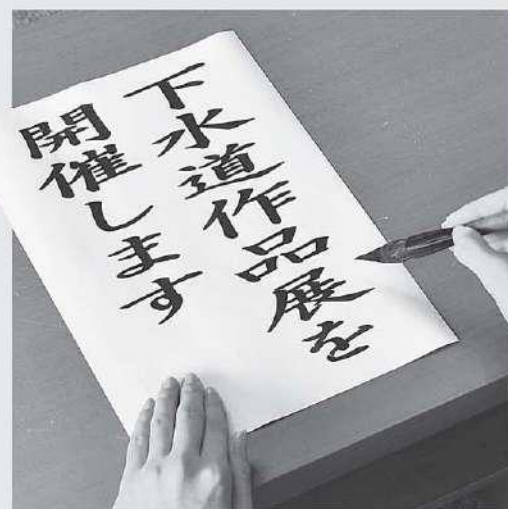 下水道作品展を
開催します